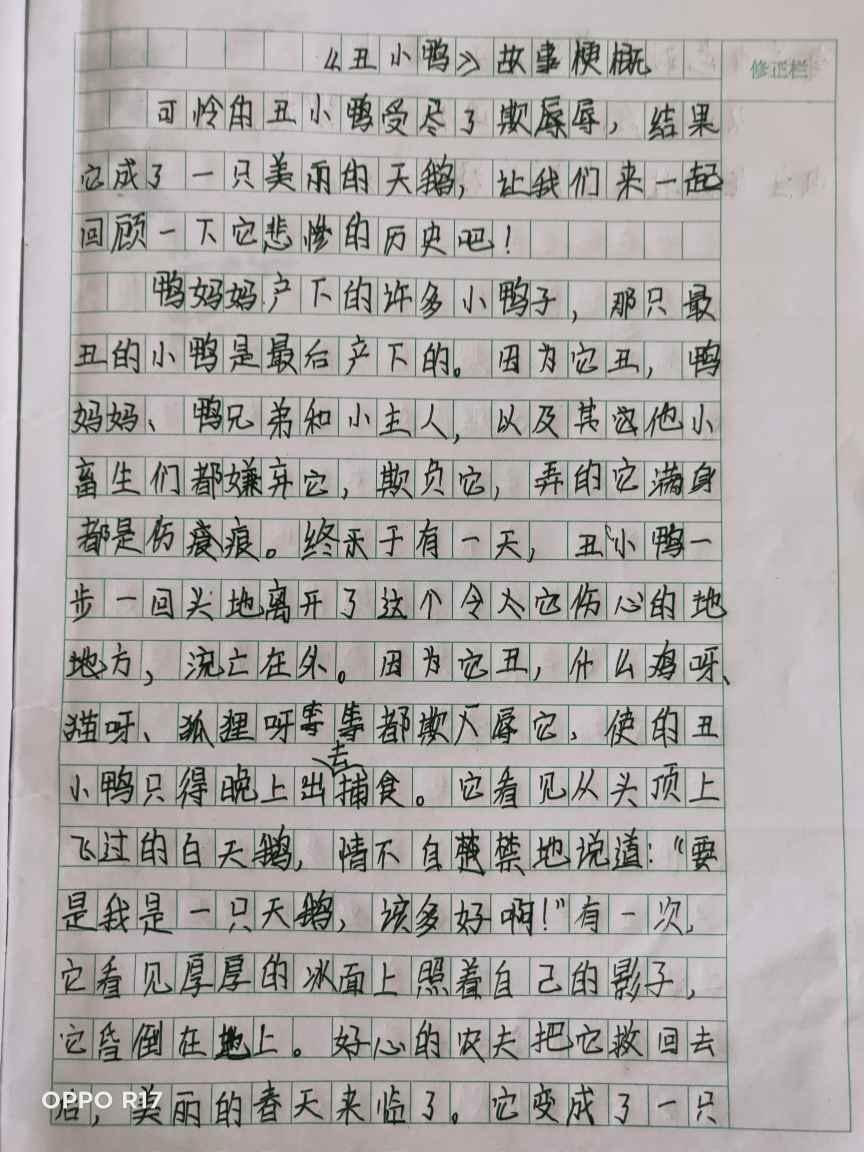 《丑小鸭》故事梗概
修正栏
可怜的丑小鸭受尽了欺辱，结果
它成了一只美丽的天鹅，让我们来一起
回顾一下它悲惨的历史吧！
鸭妈妈产下的许多小鸭子，那只最
丑的小鸭是最后产下的。因为它丑，鸭
妈妈、鸭兄弟和小主人，以及其他小
畜生们都嫌弃它，欺负它，弄的它满身
都是伤痕。终于有一天，丑小鸭一
步一回头地离开了这个令它伤心的地
地方，流亡在外。因为它丑，什么鸡呀、
猫呀、狐狸呀等等都欺辱它，使的丑
小鸭只得晚上出去捕食。它看见从头顶上
飞过的白天鹅，情不自禁地说道：“要
是我是一只天鹅，该多好啊！”有一次，
它看见厚厚的冰面上照着自己的影子，
它昏倒在地上。好心的农夫把它救回去
后，美丽的春天来临了。它变成了一只
OPPO R17